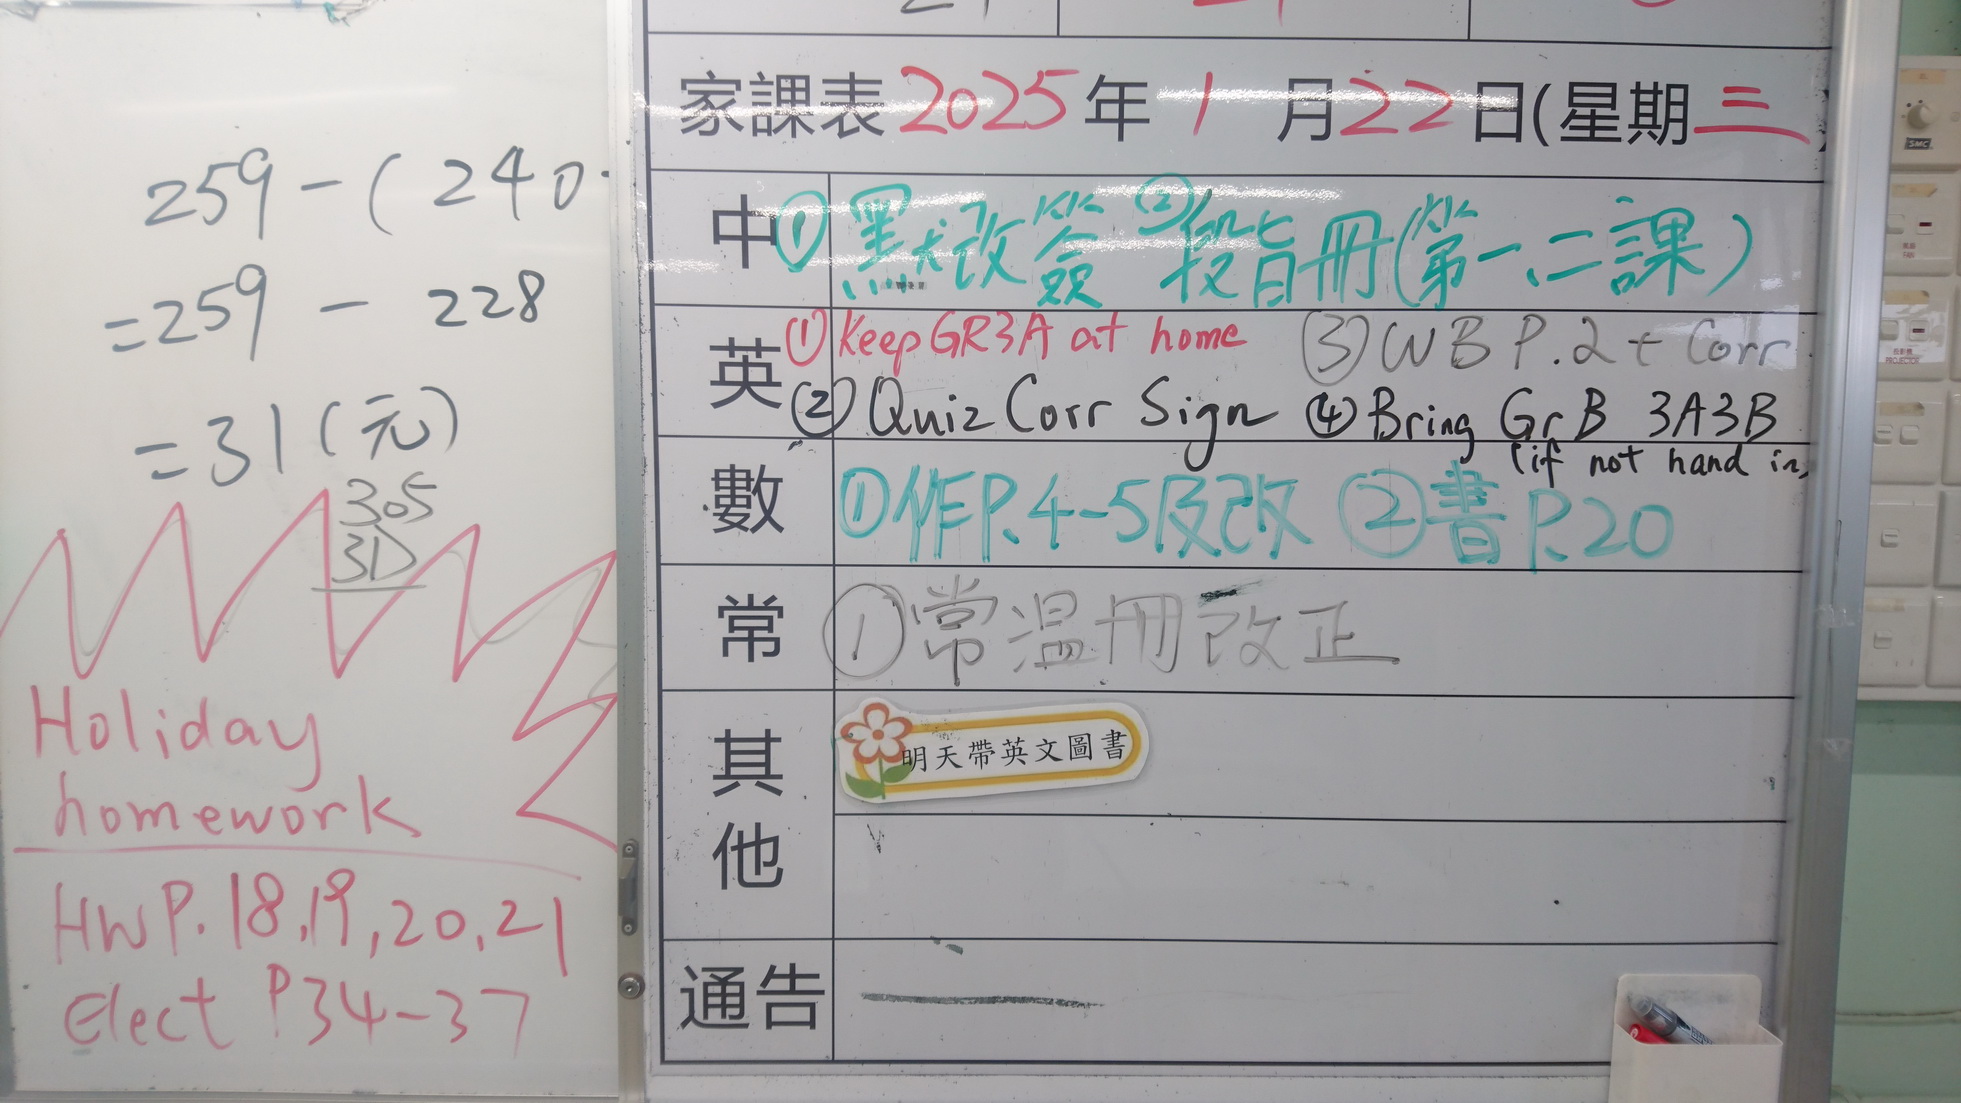 259 - ( 240
= 259 - 228
= 31 (元)
305
3D
Holiday
homework
HW P. 18, 19, 20, 21
Elect P34-37
家課表 2025 年 1 月 22 日(星期 三
中 ① 默改簽 ② 投指冊(第一、二課)
英 ① Keep GR3A at home ③ WB P.2 + Corr
② Quiz Corr Sign ④ Bring GrB 3A3B
(if not hand in)
數 ① 作P.4-5及改 ② 書P.20
常 ① 常溫冊改正
其他
明天帶英文圖書
通告
FAN
PROJECTOR
SMC